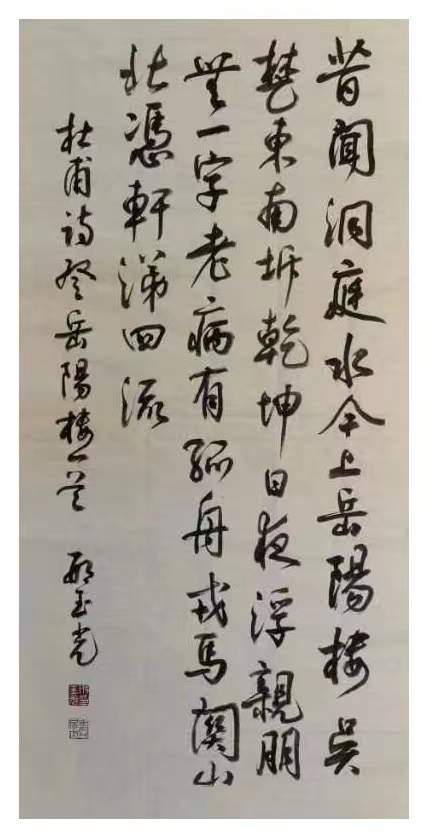 昔聞洞庭水今上岳陽樓吳
楚東南坼乾坤日夜浮親朋
無一字老病有孤舟戎馬關山
北憑軒涕泗流
杜甫詩登岳陽樓一首 邢玉光